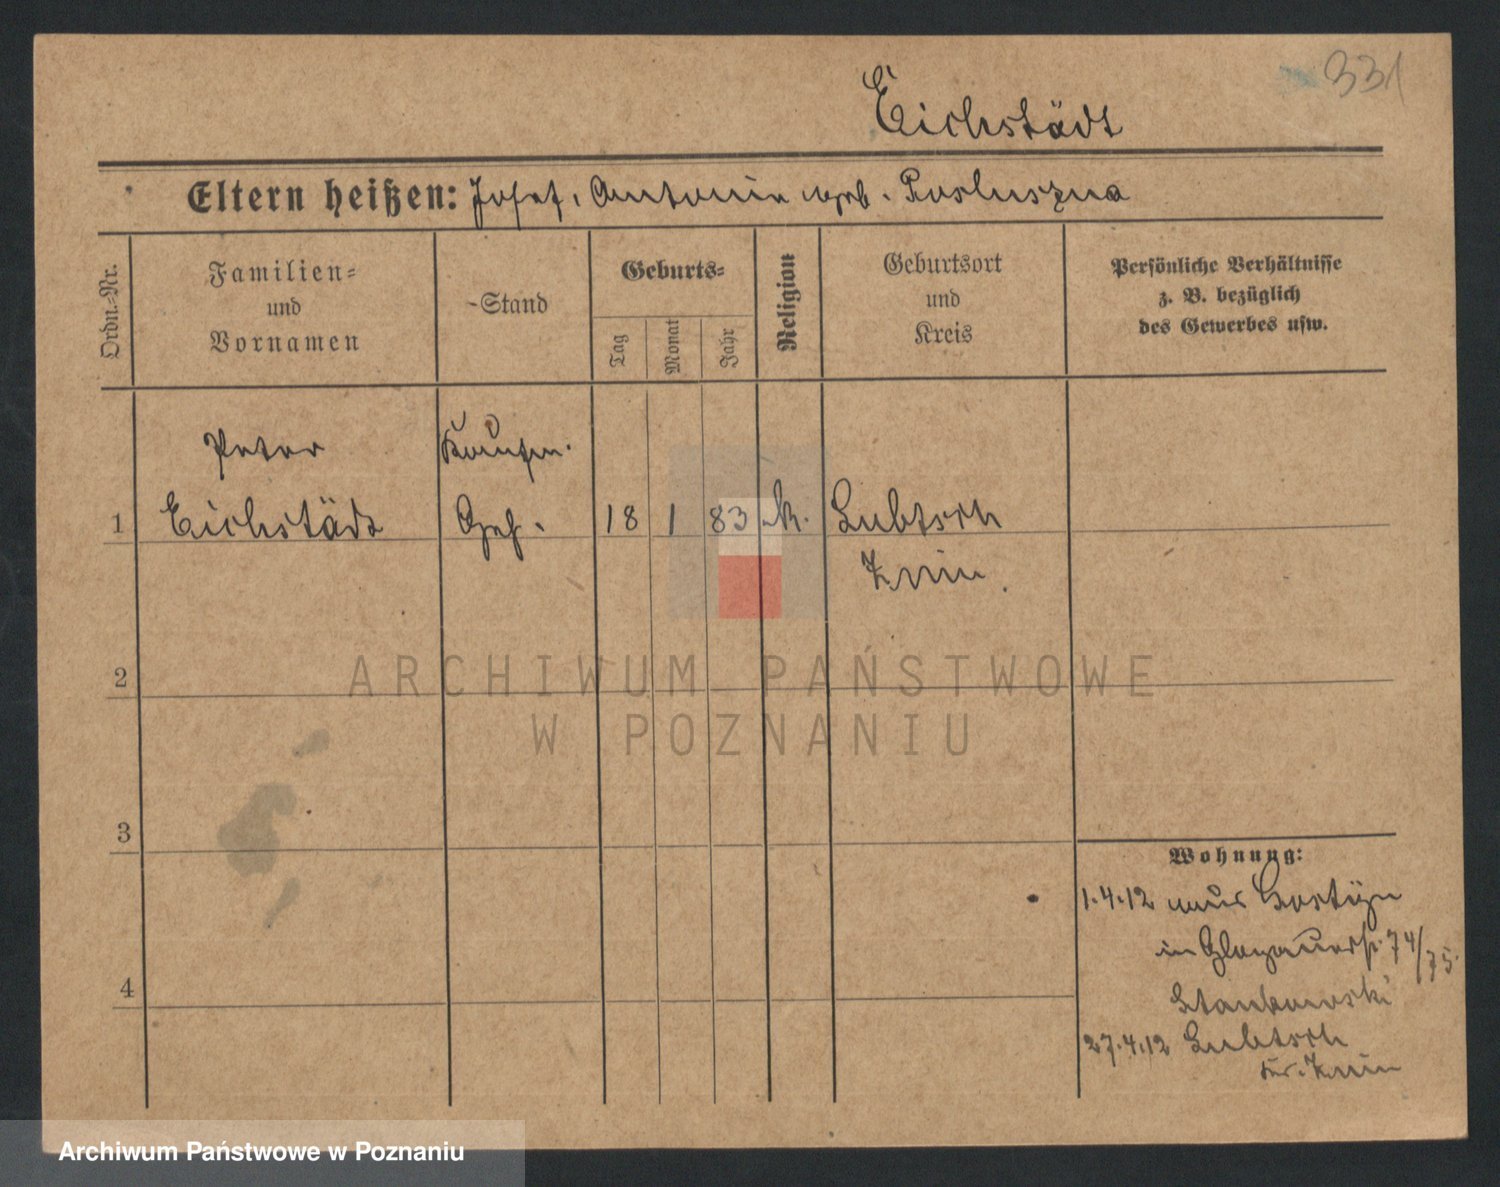 331
Eichstädt
Eltern heißen: Josef, Antonie geb. Posluszna
Ordn.-Nr.
Familien-
und
Vornamen
Stand
Geburts-
Tag
Monat
Jahr
Religion
Geburtsort
und
Kreis
Persönliche Verhältnisse
z. B. bezüglich
des Gewerbes usw.
Peter Kaufm.
1 Eichstädt Geh. 18 1 83 k. Lubtsch
Znin.
2
ARCHIWUM PAŃSTWOWE
W POZNANIU
3
Wohnung:
1.4.12 aus Gostyn
in Glogauerstr. 74/75
4
Stankowski
27.4.12 Lubtsch
Kr. Znin
Archiwum Państwowe w Poznaniu